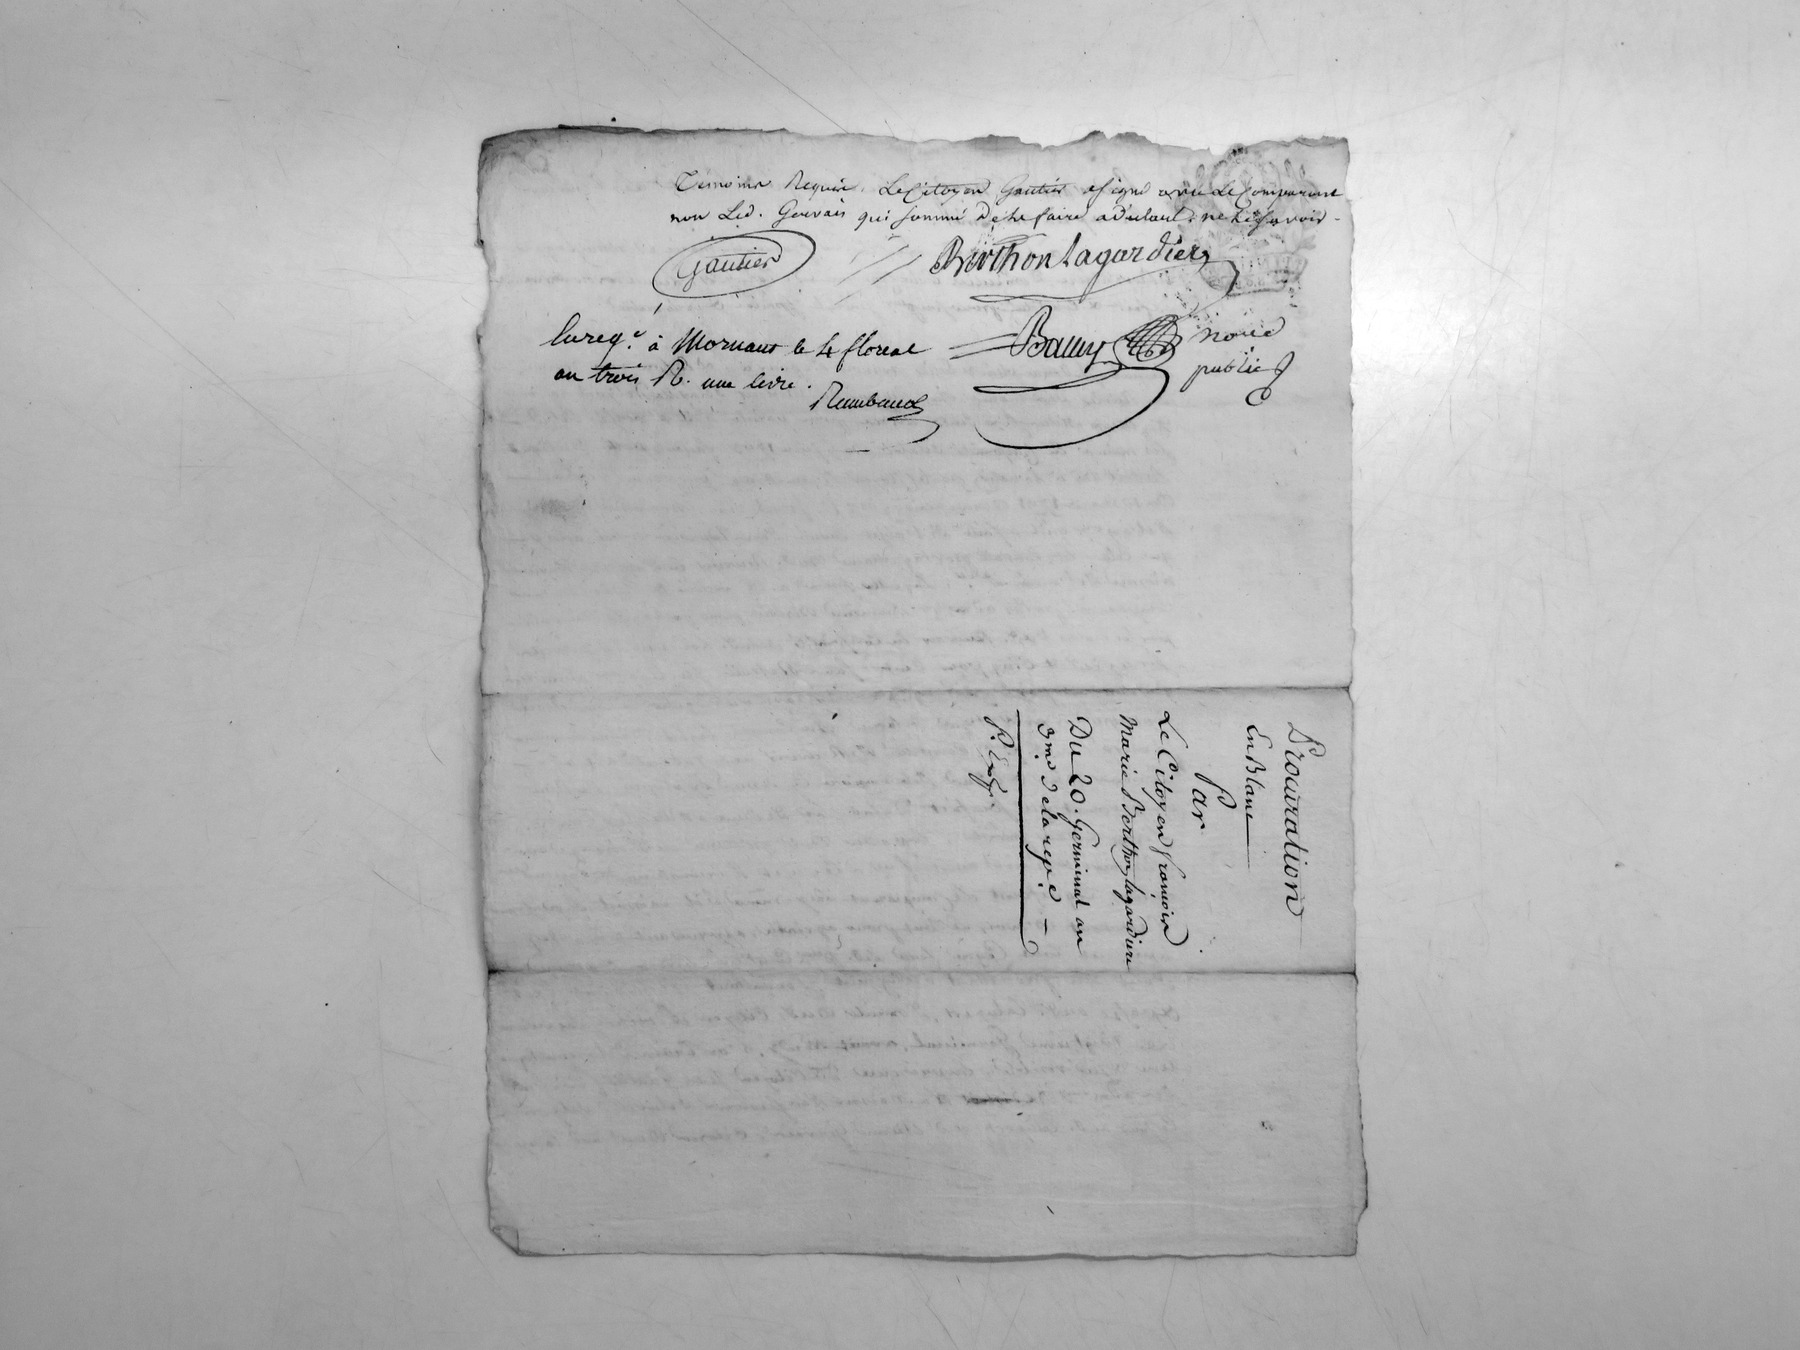 Temoins Requis. Le Citoyen Gautier a signé avec Le Comparant
non Led. Gervais qui sommé de le faire a déclaré ne le sçavoir -
Gautier
Berthon Lagardiere
Bauny no.re
public
Enreg.é à Mornant le 4 floreal
an trois R. une livre.
Raimbaud
Procuration
En Blanc
Par
Le Citoyen françois
Marie Berthon lagardiere
Du 20. Germinal an
3me. de la rep.e -